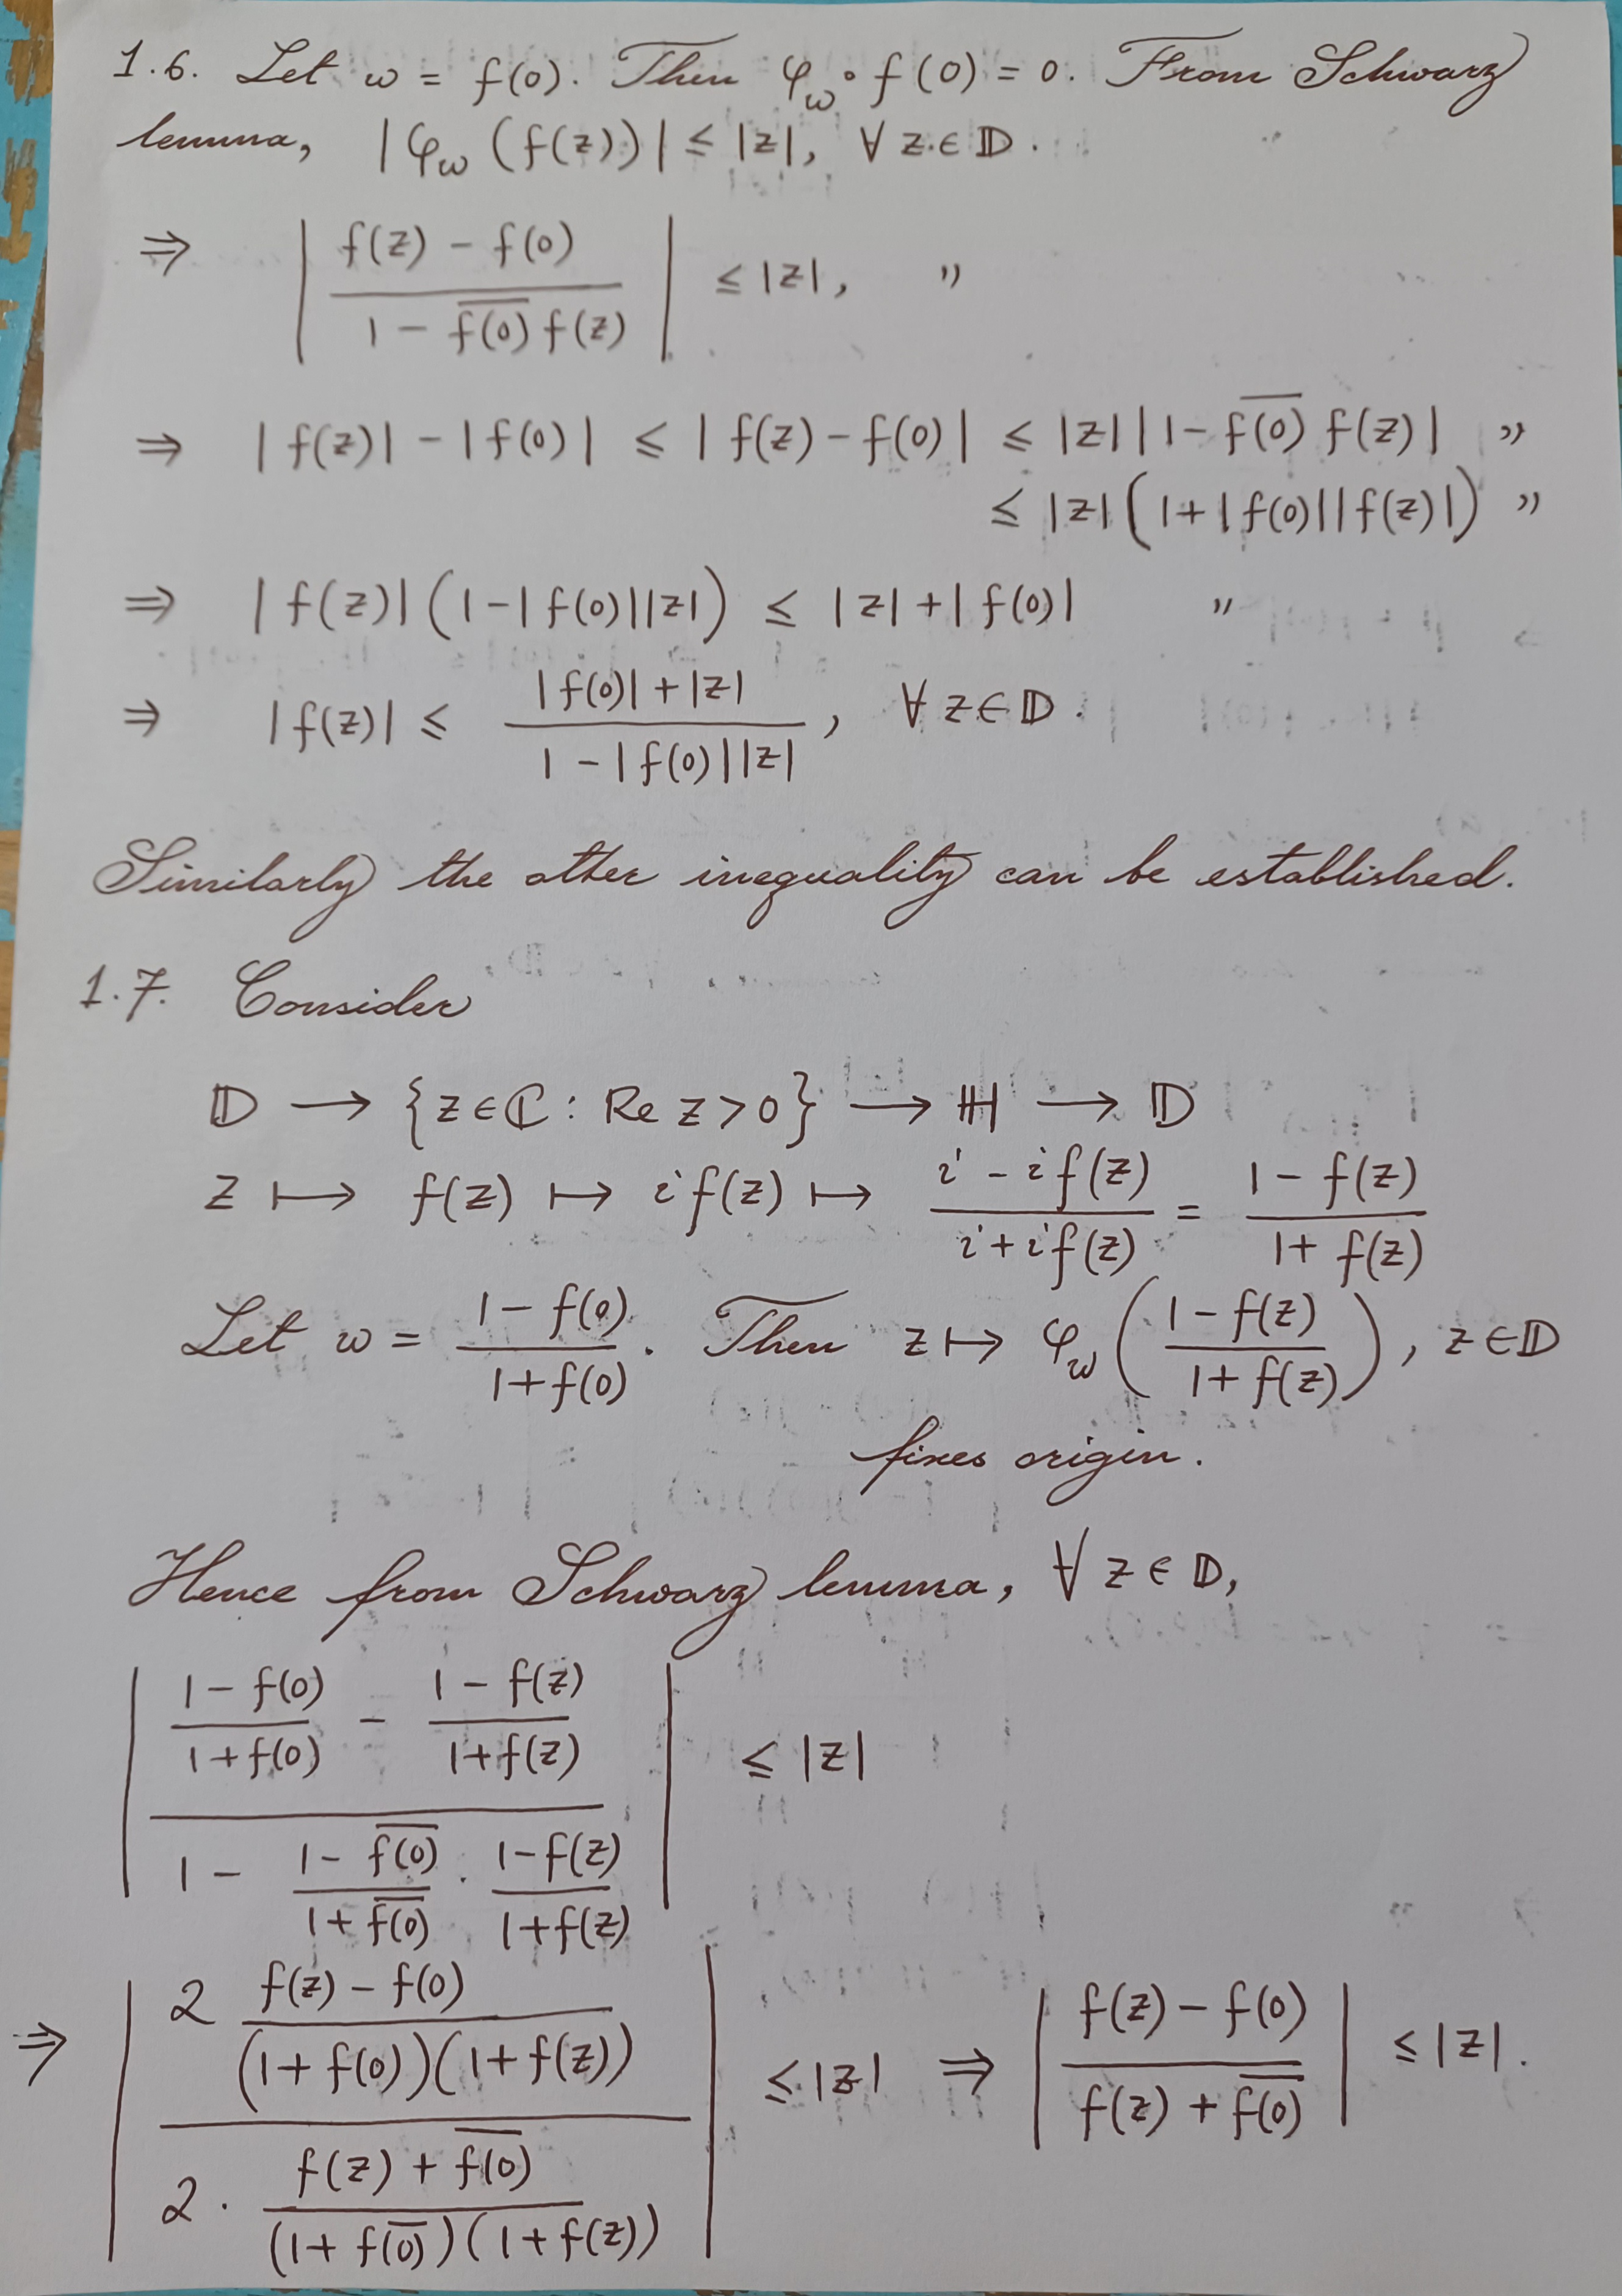 1.6. Let w = f(0). Then φ_w ∘ f(0) = 0. From Schwarz
lemma, |φ_w (f(z))| ≤ |z|, ∀ z ∈ 𝔻.
⇒ | (f(z) − f(0)) / (1 − \overline{f(0)} f(z)) | ≤ |z|, ”
⇒ |f(z)| − |f(0)| ≤ |f(z) − f(0)| ≤ |z| |1 − \overline{f(0)} f(z)| ”
≤ |z| (1 + |f(0)| |f(z)|) ”
⇒ |f(z)| (1 − |f(0)| |z|) ≤ |z| + |f(0)| ”
⇒ |f(z)| ≤ (|f(0)| + |z|) / (1 − |f(0)| |z|), ∀ z ∈ 𝔻.
Similarly the other inequality can be established.
1.7. Consider
𝔻 → {z ∈ ℂ : Re z > 0} → ℍ → 𝔻
z ↦ f(z) ↦ i f(z) ↦ (i − i f(z)) / (i + i f(z)) = (1 − f(z)) / (1 + f(z))
Let w = (1 − f(0)) / (1 + f(0)). Then z ↦ φ_w ( (1 − f(z)) / (1 + f(z)) ), z ∈ 𝔻
fixes origin.
Hence from Schwarz lemma, ∀ z ∈ 𝔻,
| ( (1 − f(0)) / (1 + f(0)) − (1 − f(z)) / (1 + f(z)) ) / ( 1 − (1 − \overline{f(0)}) / (1 + \overline{f(0)}) · (1 − f(z)) / (1 + f(z)) ) | ≤ |z|
⇒ | ( 2 (f(z) − f(0)) / ((1 + f(0))(1 + f(z))) ) / ( 2 · (f(z) + \overline{f(0)}) / ((1 + \overline{f(0)})(1 + f(z))) ) | ≤ |z| ⇒ | (f(z) − f(0)) / (f(z) + \overline{f(0)}) | ≤ |z|.